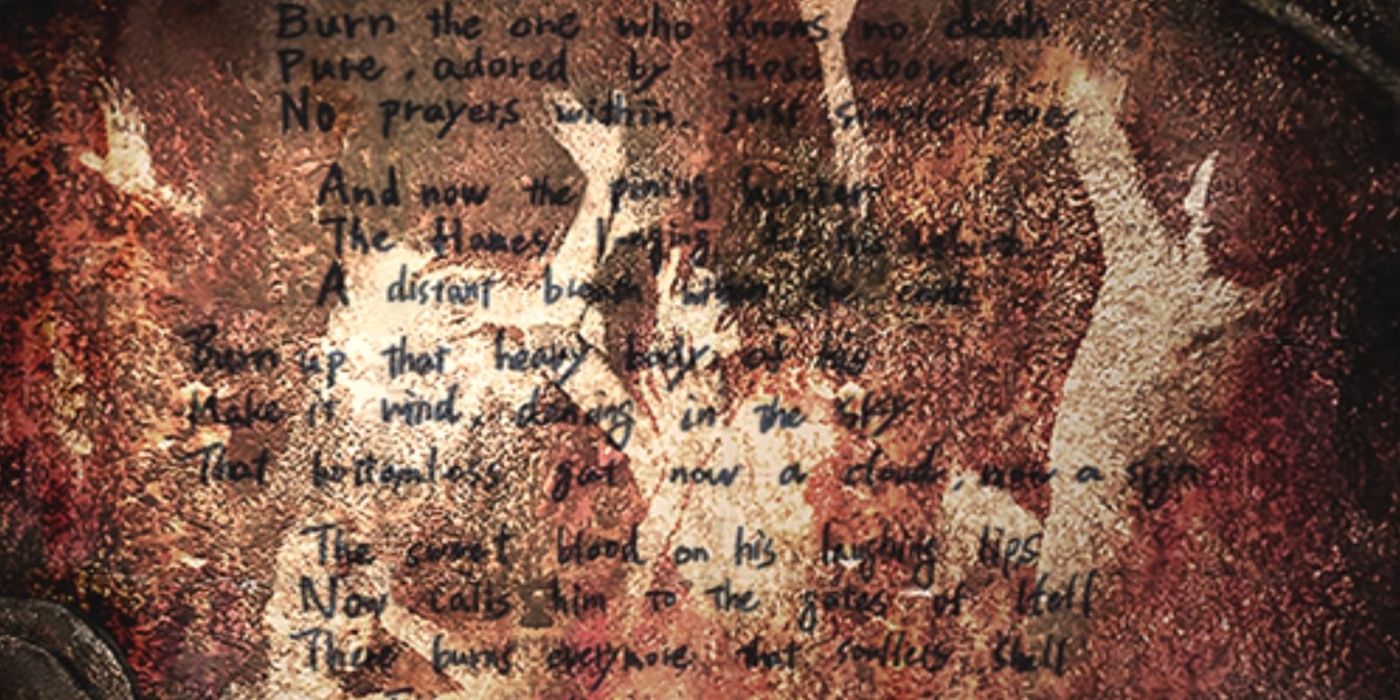 Burn the one who knows no death
Pure, adored by those above
No prayers within, just simple love
And now the pining hunter
The flames
A distant
Burn up that heavy body of his
Make it wind, dancing in the sky
That bottomless gut now a cloud, now a sign
The sweet blood on his laughing lips
Now calls him to the gates of Hell
There burns everymore that soulless shell